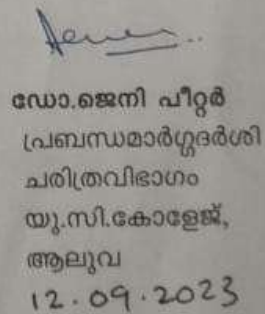 ഡോ.ജെനി പീറ്റർ
പ്രബന്ധമാർഗ്ഗദർശി
ചരിത്രവിഭാഗം
യു.സി.കോളേജ്,
ആലുവ
12.09.2023